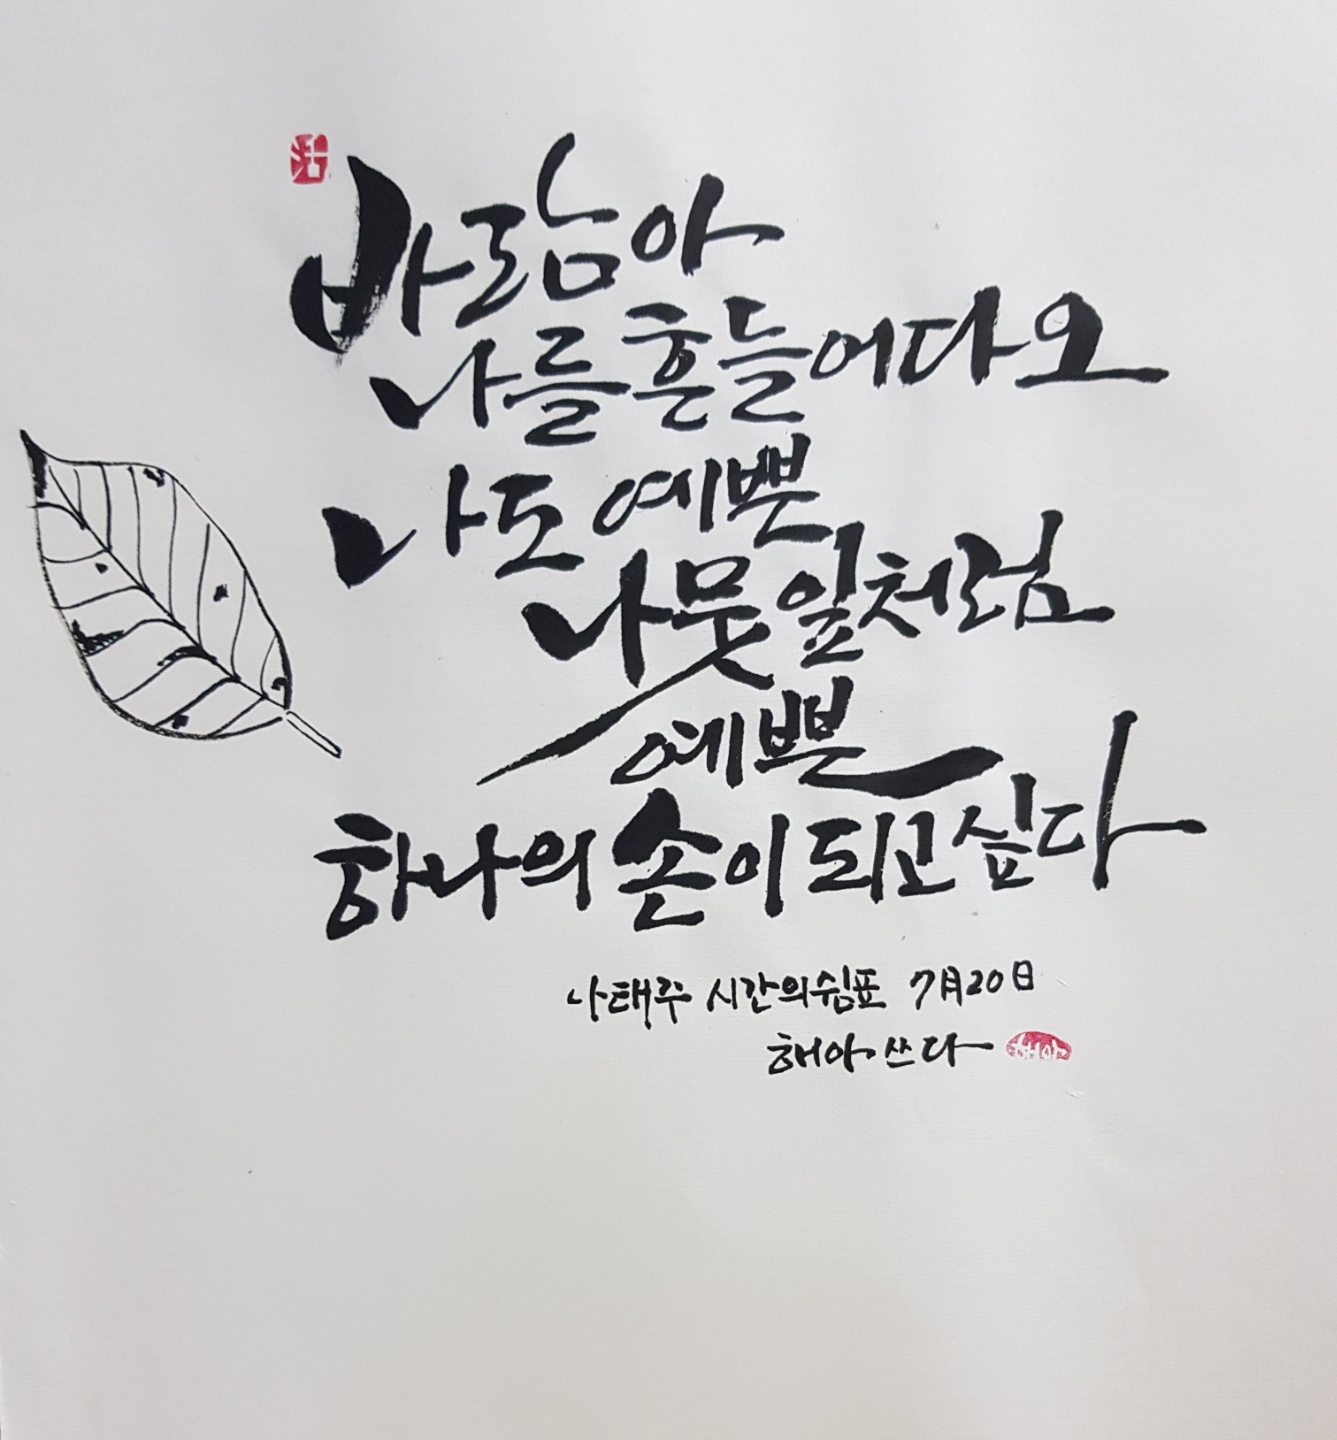 바람아
나를 흔들어다오
나도 예쁜
나뭇잎처럼
예쁜
하나의 손이 되고 싶다
나태주 시간의쉼표 7月20日
해아 쓰다